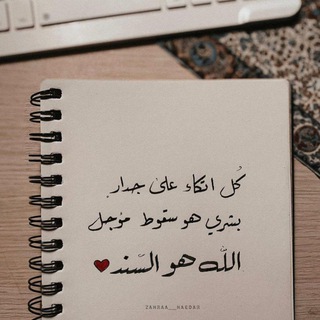 كُل اتكاء على جدارٍ
بشري هو سقوط مؤجل
اللّه هو السّند
ZAHDAA__HAEDAR